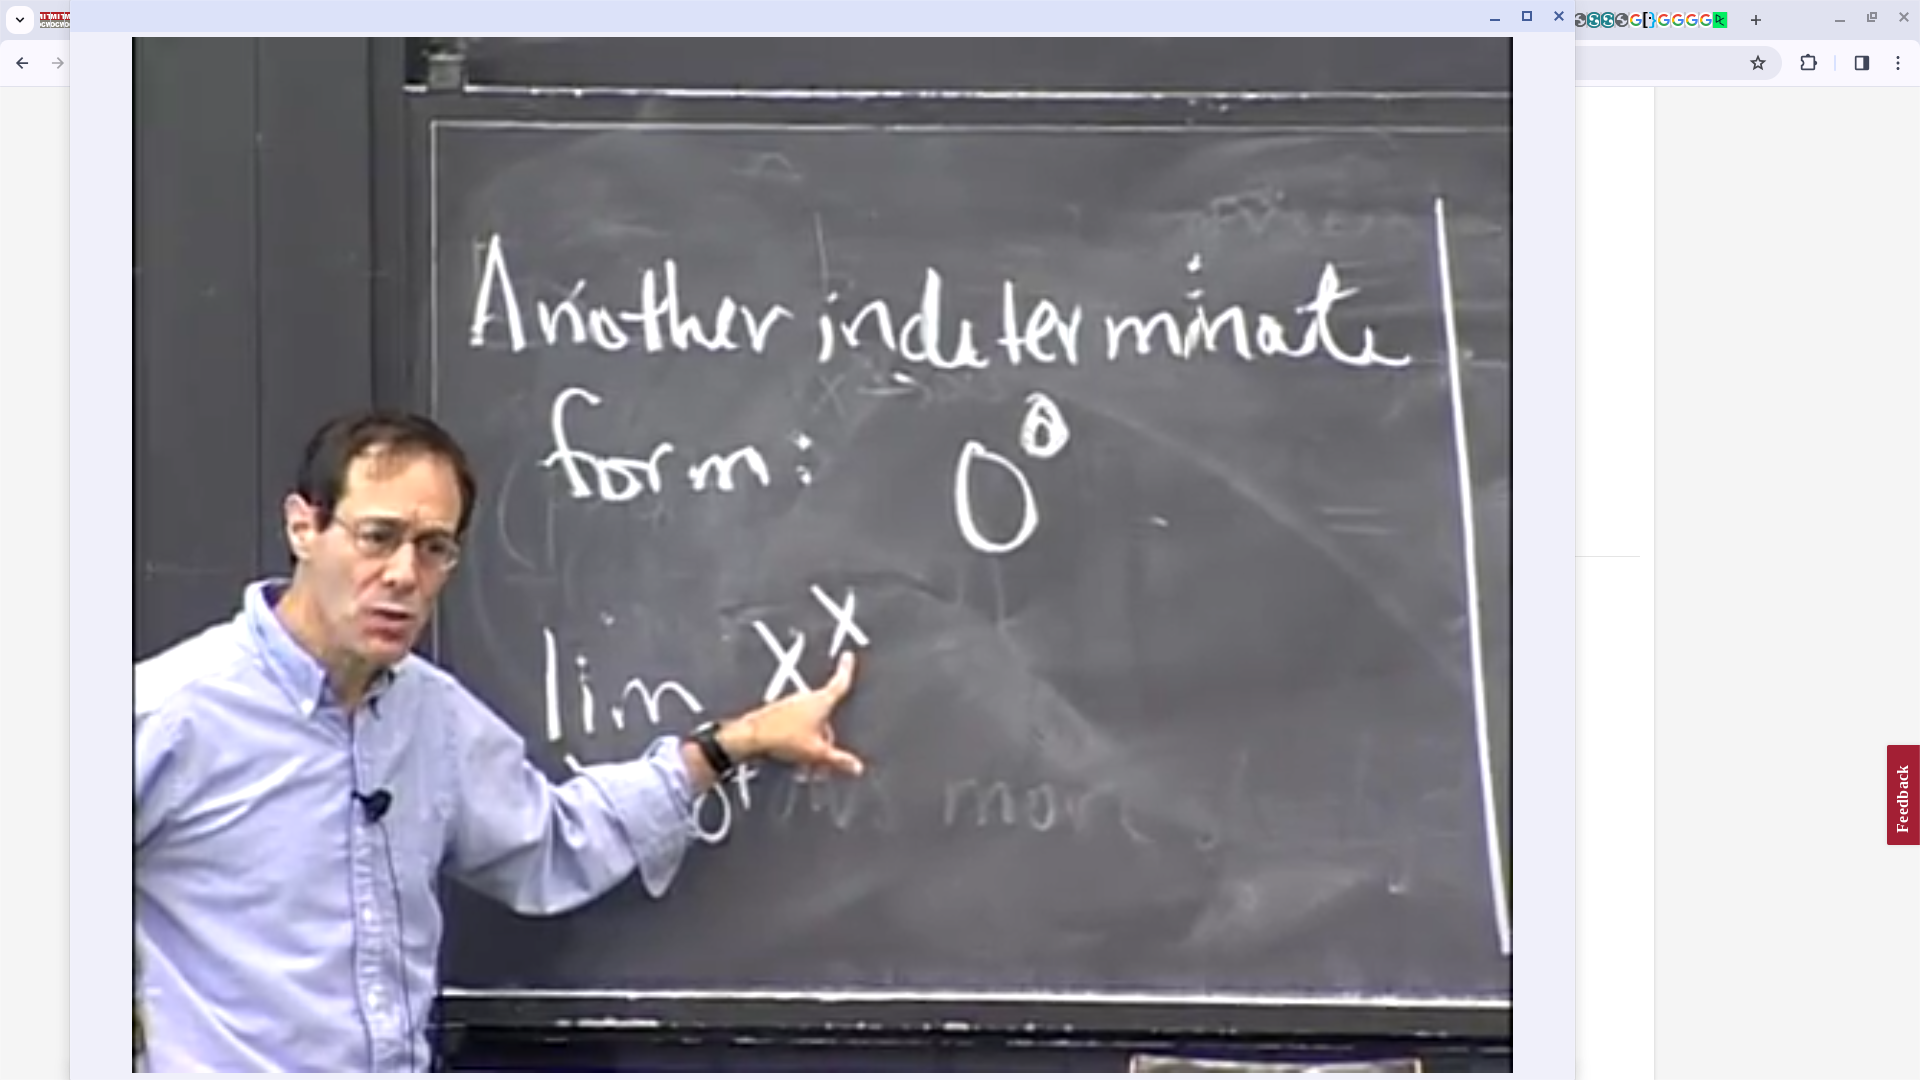 Another indeterminate
form: 0⁰
lim xˣ
0⁺
more
Feedback